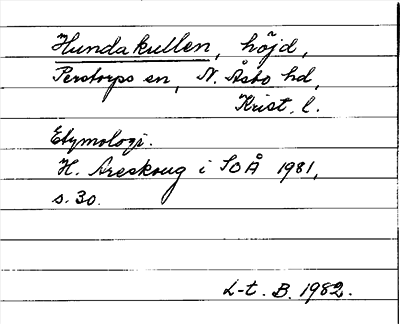 Hundakullen, höjd,
Perstorps sn, N. Åsbo hd,
Krist. l.
Etymologi.
H. Areskoug i SOÅ 1981,
s. 30.
L-t. B. 1982.